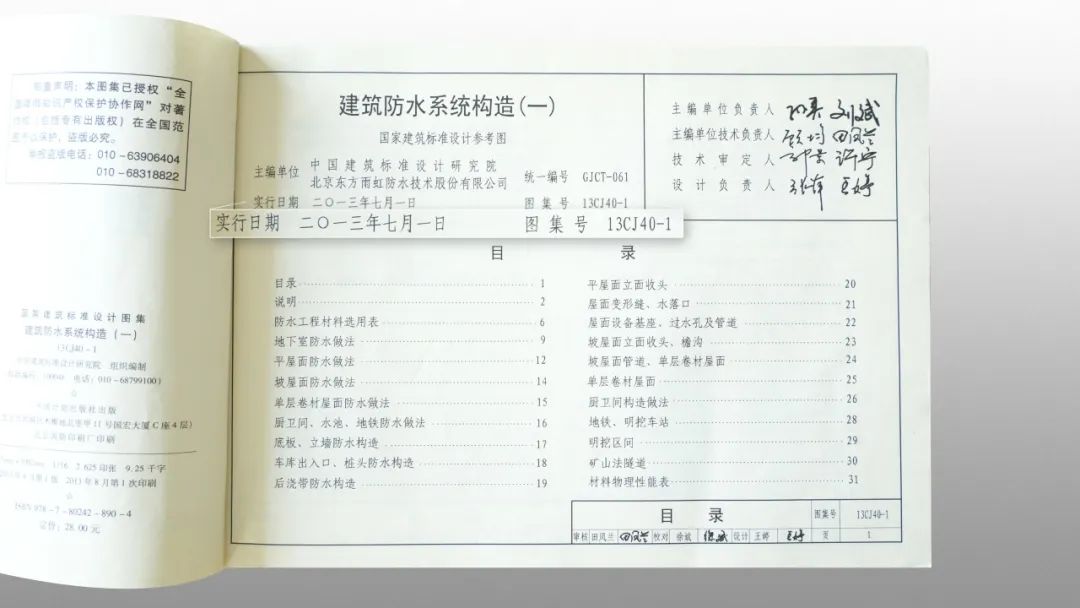 郑重声明：本图集已授权“全
国律师知识产权保护协作网”对著
作权（包括专有出版权）在全国范
围予以保护，盗版必究。
举报盗版电话：010-63906404
010-68318822
国家建筑标准设计图集
建筑防水系统构造（一）
13CJ40-1
中国建筑标准设计研究院 组织编制
（邮政编码：100048 电话：010-68799100）
☆
中国计划出版社出版
11号国宏大厦C座4层）
北京 印刷厂印刷
☆
1/16 2.625印张 9.25千字
第1版 2013年8月第1次印刷
☆
ISBN 978-7-80242-890-4
定价：28.00元
建筑防水系统构造(一)
国家建筑标准设计参考图
主编单位 中国建筑标准设计研究院
北京东方雨虹防水技术股份有限公司
统一编号 GJCT-061
实行日期 二〇一三年七月一日 图集号 13CJ40-1
实行日期 二〇一三年七月一日 图集号 13CJ40-1
主编单位负责人
主编单位技术负责人
技术审定人
设计负责人
目 录
目录 1
说明 2
防水工程材料选用表 6
地下室防水做法 9
平屋面防水做法 12
坡屋面防水做法 14
单层卷材屋面防水做法 15
厨卫间、水池、地铁防水做法 16
底板、立墙防水构造 17
车库出入口、桩头防水构造 18
后浇带防水构造 19
平屋面立面收头 20
屋面变形缝、水落口 21
屋面设备基座、过水孔及管道 22
坡屋面立面收头、檐沟 23
坡屋面管道、单层卷材屋面 24
单层卷材屋面 25
厨卫间构造做法 26
地铁、明挖车站 28
明挖区间 29
矿山法隧道 30
材料物理性能表 31
目 录 图集号 13CJ40-1
审核 田凤兰 校对 徐斌 设计 王婷 页 1